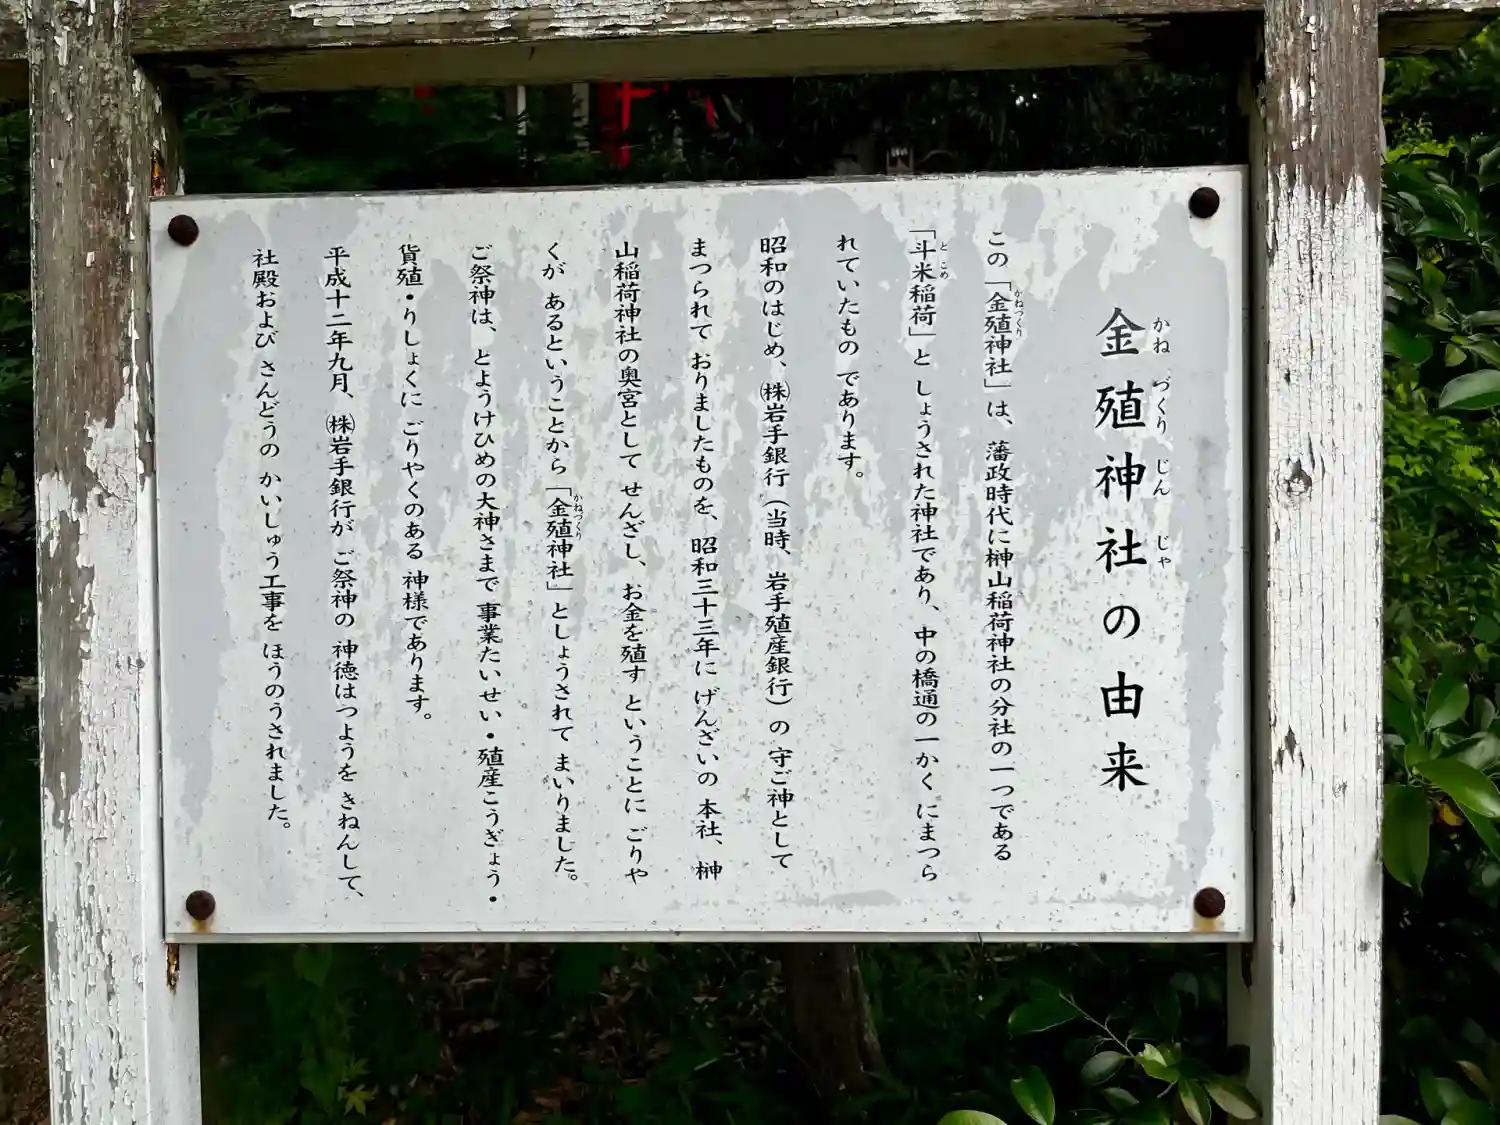 金殖神社の由来
この「金殖神社」は、藩政時代に榊山稲荷神社の分社の一つである
「斗米稲荷」と しょうされた神社であり、中の橋通の一かく にまつら
れていたもの であります。
昭和のはじめ、㈱岩手銀行(当時、岩手殖産銀行)の 守ご神として
まつられて おりましたものを、昭和三十三年に げんざいの 本社、榊
山稲荷神社の奥宮として せんざし、お金を殖す ということに ごりや
くが あるということから「金殖神社」としょうされて まいりました。
ご祭神は、とようけひめの大神さまで 事業たいせい・殖産こうぎょう・
貨殖・りしょくに ごりやくのある 神様であります。
平成十二年九月、㈱岩手銀行が ご祭神の 神徳はつようを きねんして、
社殿および さんどうの かいしゅう工事を ほうのうされました。